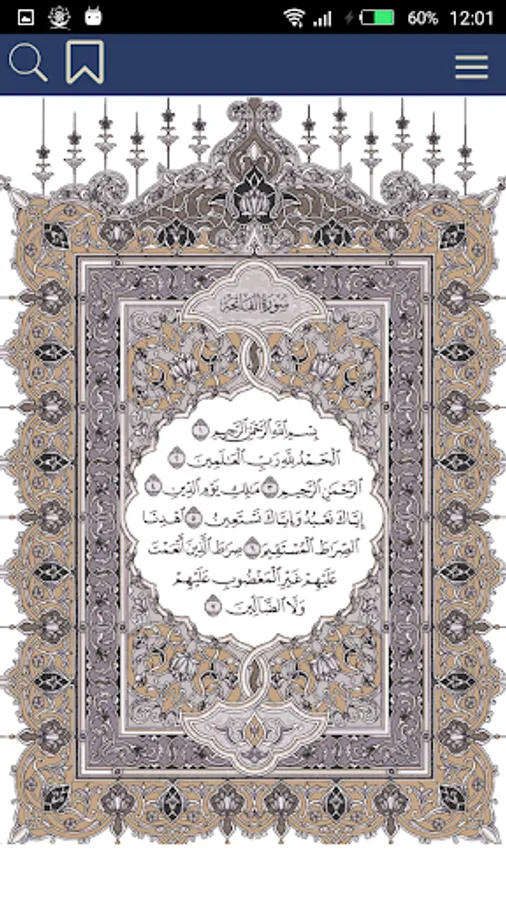 60% 12:01
سُورَةُ الفَاتِحَةِ
بِسْمِ ٱللَّهِ ٱلرَّحْمَٰنِ ٱلرَّحِيمِ ١
ٱلْحَمْدُ لِلَّهِ رَبِّ ٱلْعَٰلَمِينَ ٢
ٱلرَّحْمَٰنِ ٱلرَّحِيمِ ٣ مَٰلِكِ يَوْمِ ٱلدِّينِ ٤
إِيَّاكَ نَعْبُدُ وَإِيَّاكَ نَسْتَعِينُ ٥ ٱهْدِنَا
ٱلصِّرَٰطَ ٱلْمُسْتَقِيمَ ٦ صِرَٰطَ ٱلَّذِينَ أَنْعَمْتَ
عَلَيْهِمْ غَيْرِ ٱلْمَغْضُوبِ عَلَيْهِمْ
وَلَا ٱلضَّآلِّينَ ٧